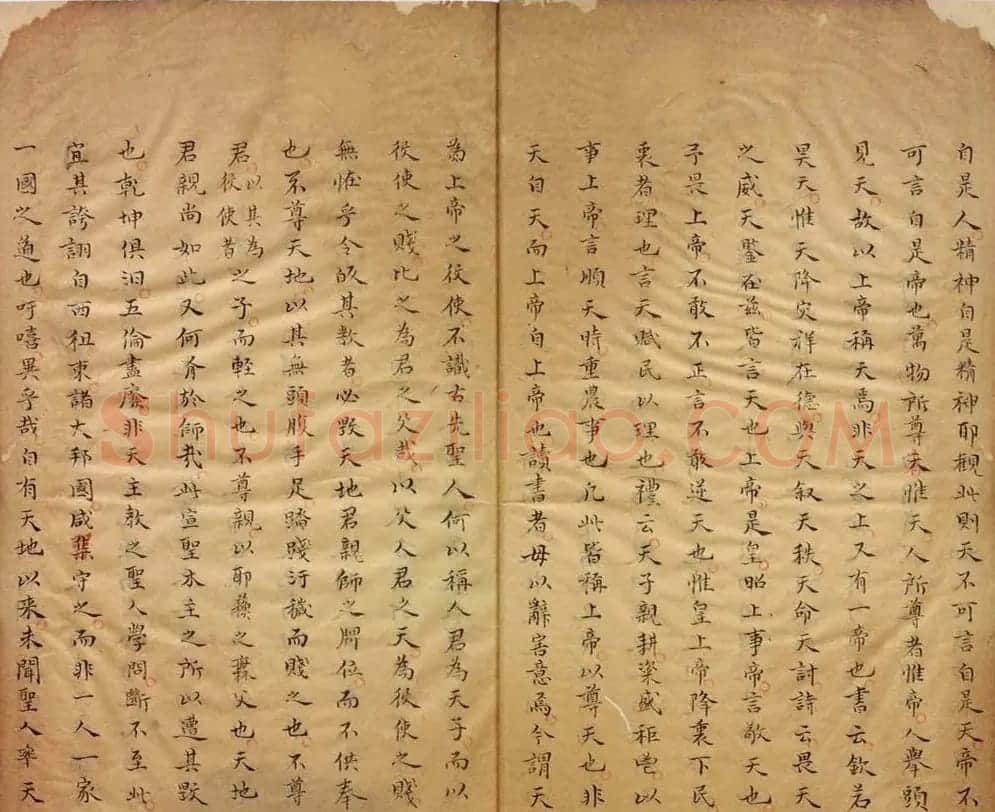 自是人精神自是精神耶觀此則天不可言自是天帝不
可言自是帝也萬物所尊者惟天人所尊者惟帝人舉頭
見天故以上帝稱天焉非天之上又有一帝也書云欽若
昊天惟天降灾祥在德與天叙天秩天命天討詩云畏天
之威天鑒在兹皆言天也上帝是皇昭上事帝言敬天也
予畏上帝不敢不正言不敢逆天也惟皇上帝降衷下民
衷者理也言天賦民以理也禮云天子親耕粢盛秬鬯以
事上帝言順天時重農事也凡此皆稱上帝以尊天也非
天自天而上帝自上帝也讀書者毋以辭害意焉今謂天
為上帝之役使不識古先聖人何以稱人君為天子而以
役使之賤比之為君之父哉以父人君之天為役使之賤
無恠乎令皈其教者必毀天地君親師之牌位而不供奉
也不尊天地以其無頭腹手足踏踐汙穢而賤之也不尊
君以其為役使者之子而輕之也不尊親以耶穌之無父也天地
君親尚如此又何有於師哉此宣聖木主之所以遭其毀
也乾坤俱汩五倫盡廢非天主教之聖人學問斷不至此
宜其誇詡自西徂東諸大邦國咸集守之而非一人一家
一國之道也吁嘻異乎哉自有天地以來未聞聖人率天
Shufaziliao.COM